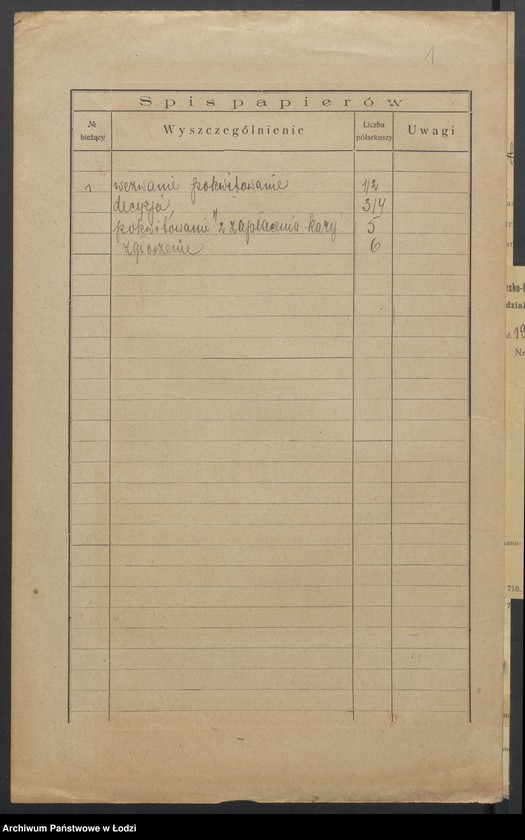 1
Spis papierów
№ bieżący
Wyszczególnienie
Liczba półarkuszy
Uwagi
1 wezwanie pokwitowanie 1/2
decyzja 3/4
pokwitowanie z zapłacenia kary 5
zgłoszenie 6
dział
19
Nr
710,
Archiwum Państwowe w Łodzi